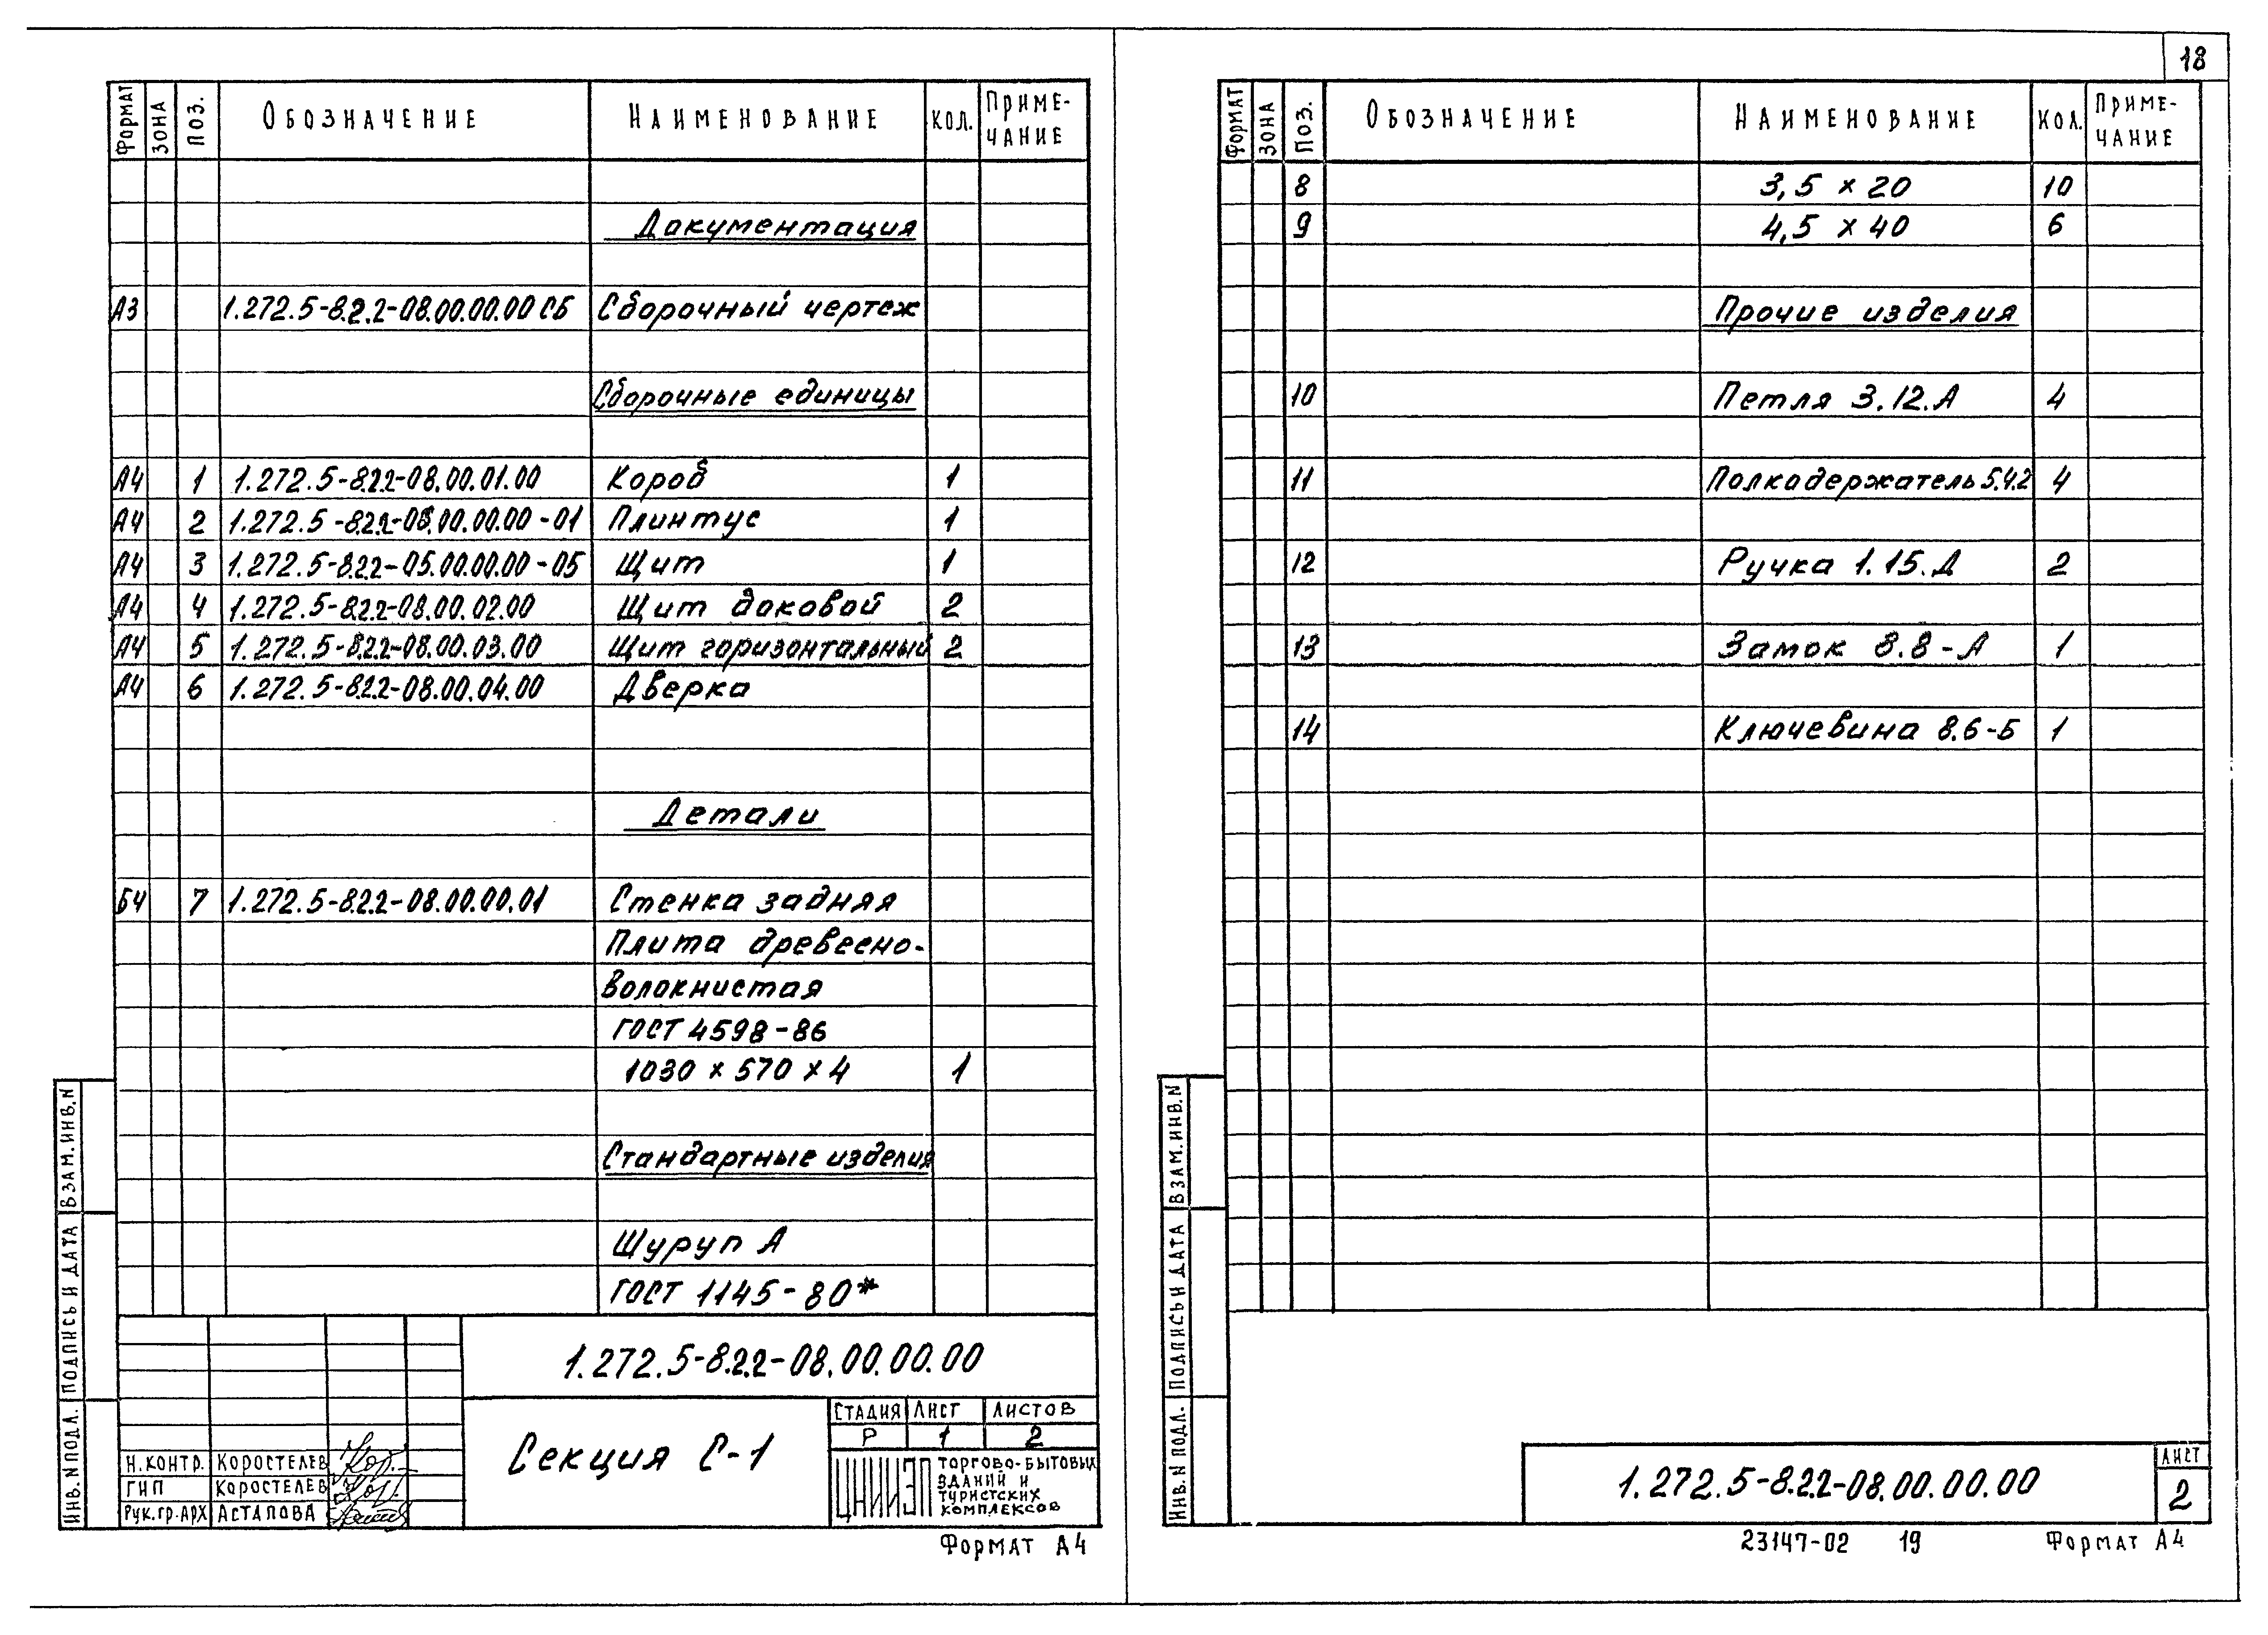 18
Формат Зона Поз. Обозначение Наименование Кол. Приме-
чание
Документация
А3 1.272.5-8.2.2-08.00.00.00 СБ Сборочный чертеж
Сборочные единицы
А4 1 1.272.5-8.2.2-08.00.01.00 Короб 1
А4 2 1.272.5-8.2.2-08.00.00.00-01 Плинтус 1
А4 3 1.272.5-8.2.2-05.00.00.00-05 Щит 1
А4 4 1.272.5-8.2.2-08.00.02.00 Щит боковой 2
А4 5 1.272.5-8.2.2-08.00.03.00 Щит горизонтальный 2
А4 6 1.272.5-8.2.2-08.00.04.00 Дверка
Детали
БЧ 7 1.272.5-8.2.2-08.00.00.01 Стенка задняя
Плита древесно-
волокнистая
ГОСТ 4598-86
1030 × 570 × 4 1
Стандартные изделия
Шуруп А
ГОСТ 1145-80*
1.272.5-8.2.2-08.00.00.00
Секция С-1
Стадия Лист Листов
Р 1 2
Н.контр. Коростелев
ГИП Коростелев
Рук.гр.арх Астапова
ЦНИИЭП торгово-бытовых
зданий и
туристских
комплексов
Инв. N подл. Подпись и дата Взам. инв. N
Формат А4
Формат Зона Поз. Обозначение Наименование Кол. Приме-
чание
8 3,5 × 20 10
9 4,5 × 40 6
Прочие изделия
10 Петля 3.12.А 4
11 Полкодержатель 5.4.2 4
12 Ручка 1.15.Д 2
13 Замок 8.8-А 1
14 Ключевина 8.6-Б 1
Инв. N подл. Подпись и дата Взам. инв. N
1.272.5-8.2.2-08.00.00.00
Лист
2
23147-02 19 Формат А4